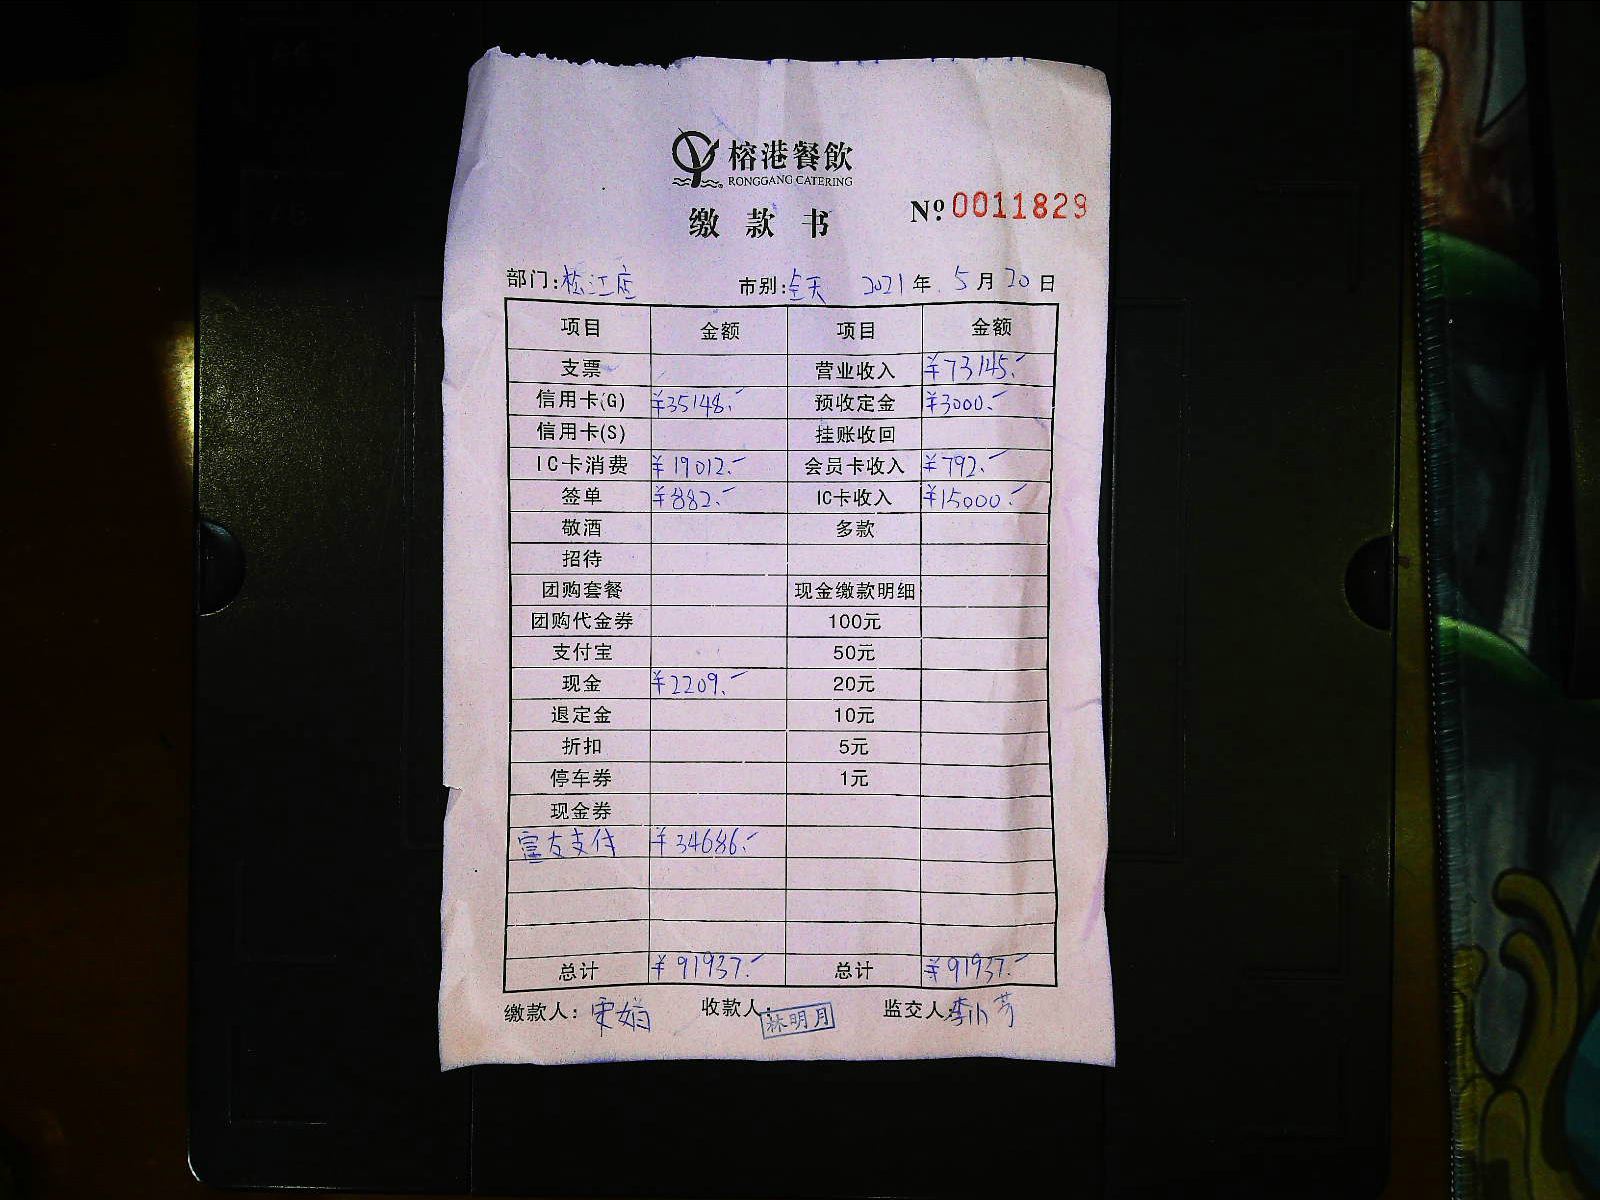 榕港餐飲
RONGGANG CATERING
缴款书
№ 0011829
部门:松江店 市别:全天 2021年5月20日
项目 金额 项目 金额
支票 营业收入 ¥73145.-
信用卡(G) ¥35148.- 预收定金 ¥3000.-
信用卡(S) 挂账收回
IC卡消费 ¥19012.- 会员卡收入 ¥792.-
签单 ¥882.- IC卡收入 ¥15000.-
敬酒 多款
招待
团购套餐 现金缴款明细
团购代金券 100元
支付宝 50元
现金 ¥2209.- 20元
退定金 10元
折扣 5元
停车券 1元
现金券
富友支付 ¥34686.-
总计 ¥91937.- 总计 ¥91937.-
缴款人: 收款人:林明月 监交人:李小芳